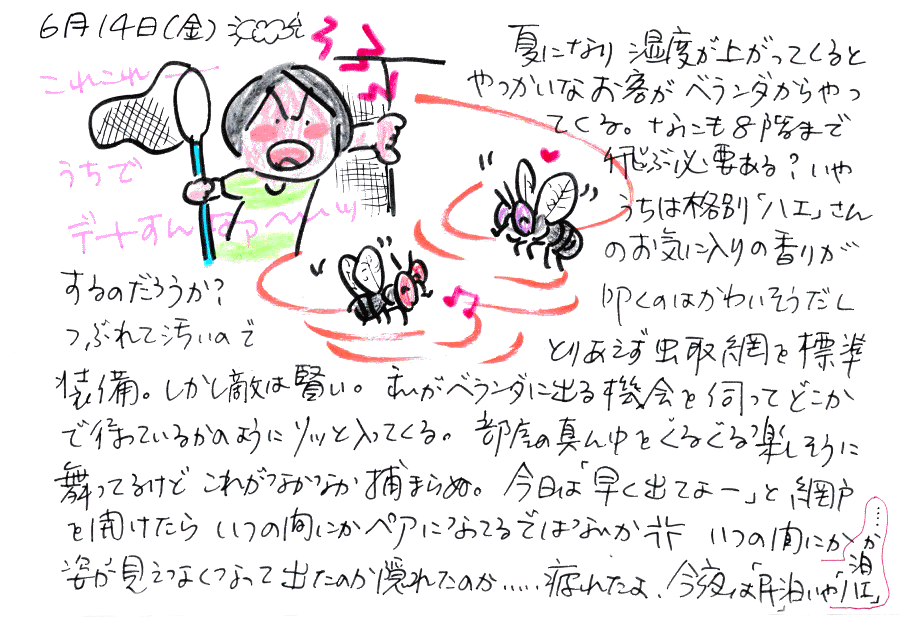 6月14日(金)
これこれー
うちで
デートすんなァ〜〜〜ッッ
夏になり 湿度が上がってくると
やっかいなお客が ベランダからやっ
てくる。なにも8階まで
飛ぶ必要ある？いや
うちは格別「ハエ」さん
のお気に入りの香りが
するのだろうか？
叩くのはかわいそうだし
つぶれて汚いので
とりあえず虫取網を標準
装備。しかし敵は賢い。私がベランダに出る機会を伺ってどこか
で待っているかのようにソッと入ってくる。部屋の真ん中をぐるぐる楽しそうに
舞ってるけど これがなかなか捕まらぬ。今日は「早く出てよー」と網戸
を開けたら いつの間にかペアになってるではないか いつの間にかか
姿が見えなくなって出たのか隠れたのか……疲れたよ、今夜は「民泊」いや「ハエ
泊」
……